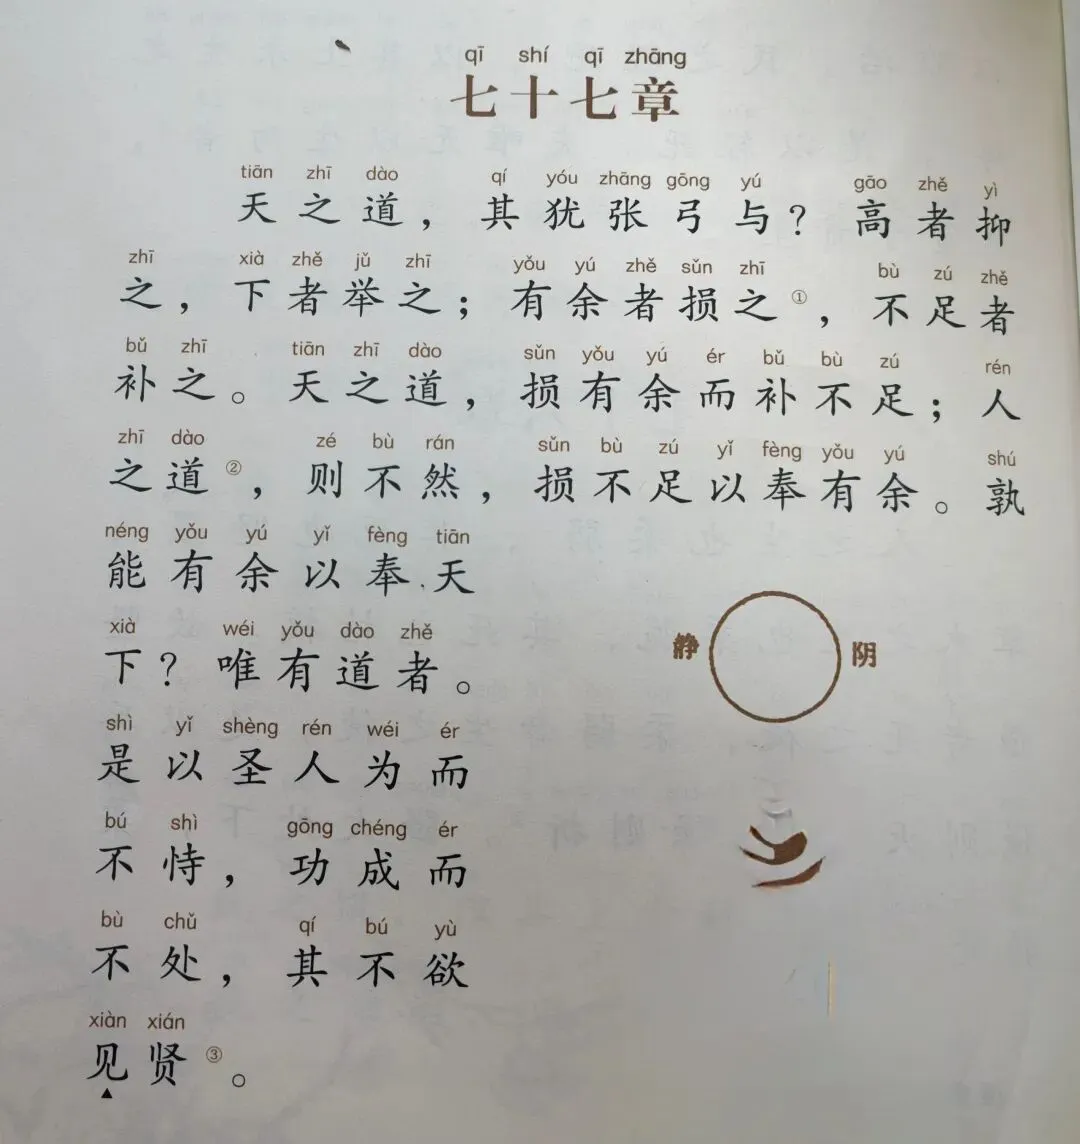 qī shí qī zhāng
七十七章
tiān zhī dào qí yóu zhāng gōng yú gāo zhě yì
天之道，其犹张弓与？高者抑
zhī xià zhě jǔ zhī yǒu yú zhě sǔn zhī bù zú zhě
之，下者举之；有余者损之①，不足者
bǔ zhī tiān zhī dào sǔn yǒu yú ér bǔ bù zú rén
补之。天之道，损有余而补不足；人
zhī dào zé bù rán sǔn bù zú yǐ fèng yǒu yú shú
之道②，则不然，损不足以奉有余。孰
néng yǒu yú yǐ fèng tiān
能有余以奉天
xià wéi yǒu dào zhě
下？唯有道者。
shì yǐ shèng rén wéi ér
是以圣人为而
bú shì gōng chéng ér
不恃，功成而
bù chǔ qí bú yù
不处，其不欲
xiàn xián
见贤③。
静 阴